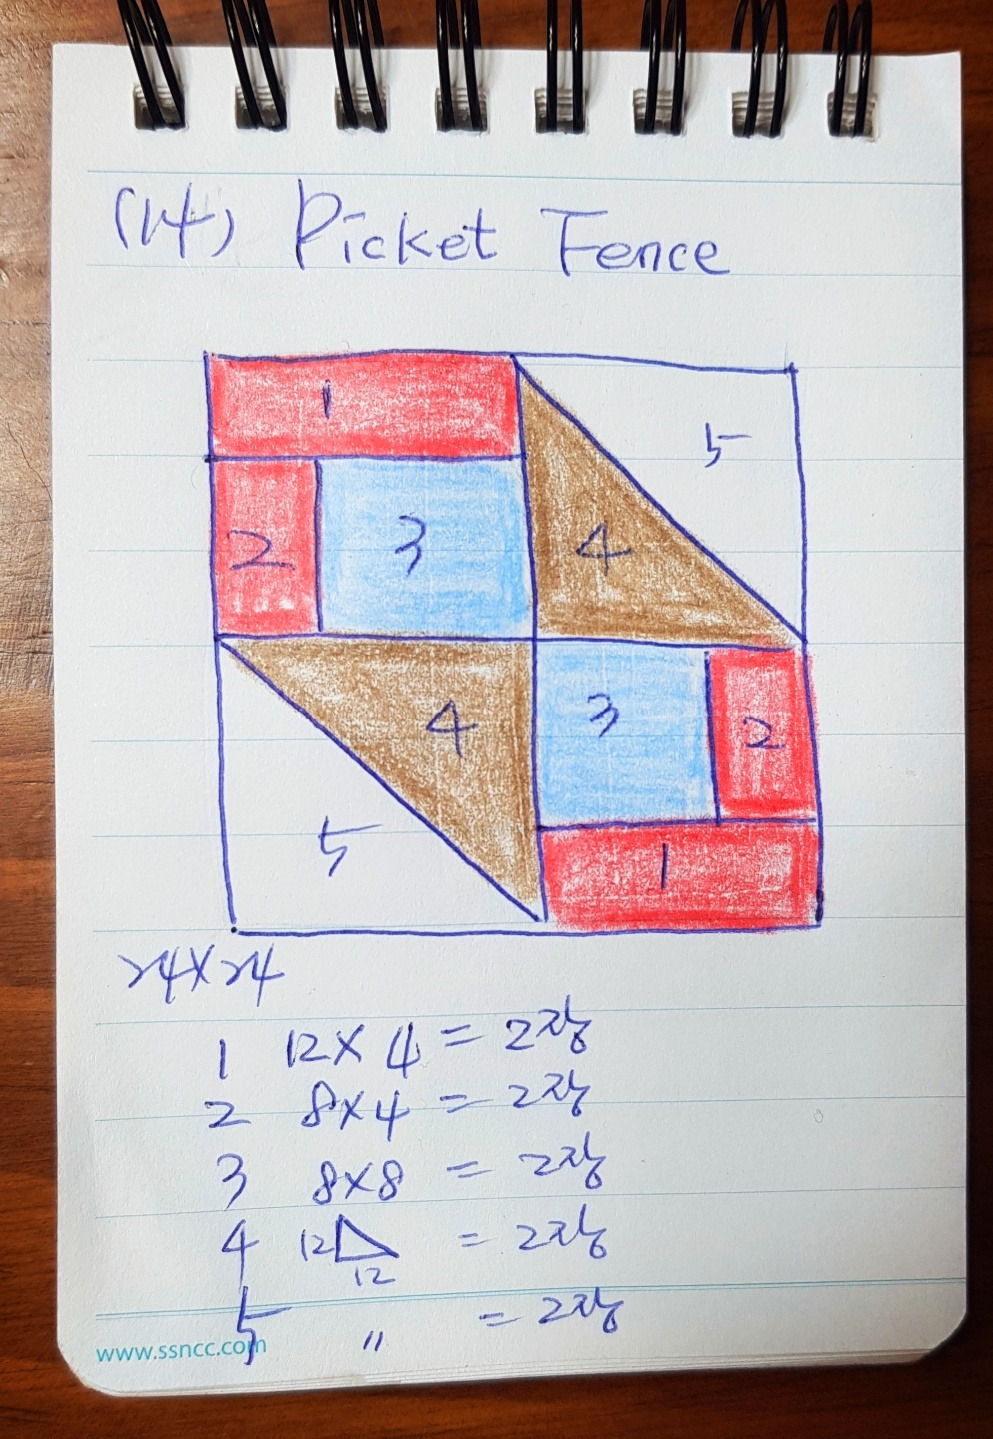 (14) Picket Fence
1
5
2 3 4
4 3 2
5 1
24X24
1 12X4 = 2장
2 8X4 = 2장
3 8X8 = 2장
4 12 12 = 2장
5 〃 = 2장
www.ssncc.com